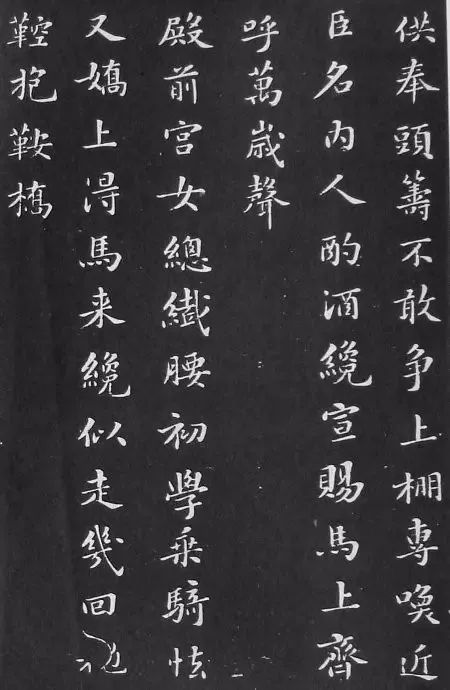 供奉頭籌不敢争上棚専喚近
臣名内人酌酒纔宣賜馬上齊
呼萬歲聲
殿前宮女總纖腰初學乗騎怯
又嬌上得馬来纔似走幾回抛
鞚抱鞍橋